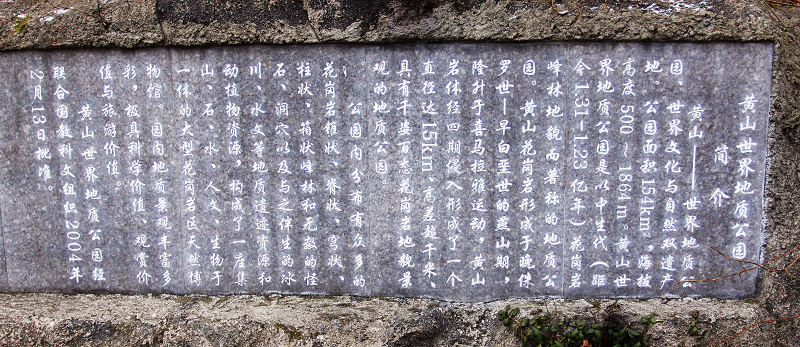 黄山世界地质公园
简介
黄山——世界地质公
园、世界文化与自然双遗产
地。公园面积154km²,海拔
高度500～1864m。黄山世
界地质公园是以中生代(距
今1.31-1.23亿年)花岗岩
峰林地貌而著称的地质公
园。黄山花岗岩形成于晚侏
罗世—早白垩世的燕山期,
隆升于喜马拉雅运动,黄山
岩体经四期侵入形成了一个
直径达15km、高差超千米、
具有千姿百态花岗岩地貌景
观的地质公园。
公园内分布有众多的
花岗岩锥状、脊状、穹状、
柱状、箱状峰林和无数的怪
石、洞穴以及与之伴生的冰
川、水文等地质遗迹资源和
动植物资源,构成了一座集
山、石、水、人文、生物于
一体的大型花岗岩区天然博
物馆。园内地质景观丰富多
彩,极具科学价值、观赏价
值与旅游价值。
黄山世界地质公园经
联合国教科文组织2004年
2月13日批准。